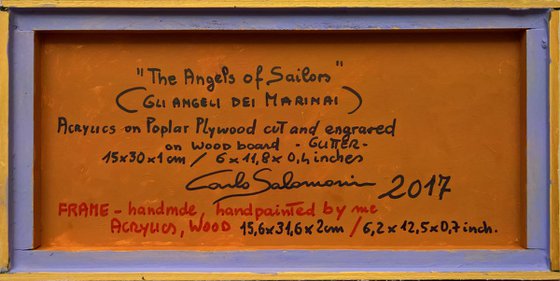 "The Angels of Sailors"
(GLI ANGELI DEI MARINAI)
Acrylics on Poplar Plywood cut and engraved
on wood board - GLITTER -
15x30x1cm / 6x11,8x0,4 inches
Carlo Salomoni 2017
FRAME - handmde, handpainted by me
ACRYLICS, WOOD 15,6x31,6x2cm / 6,2x12,5x0,7 inch.